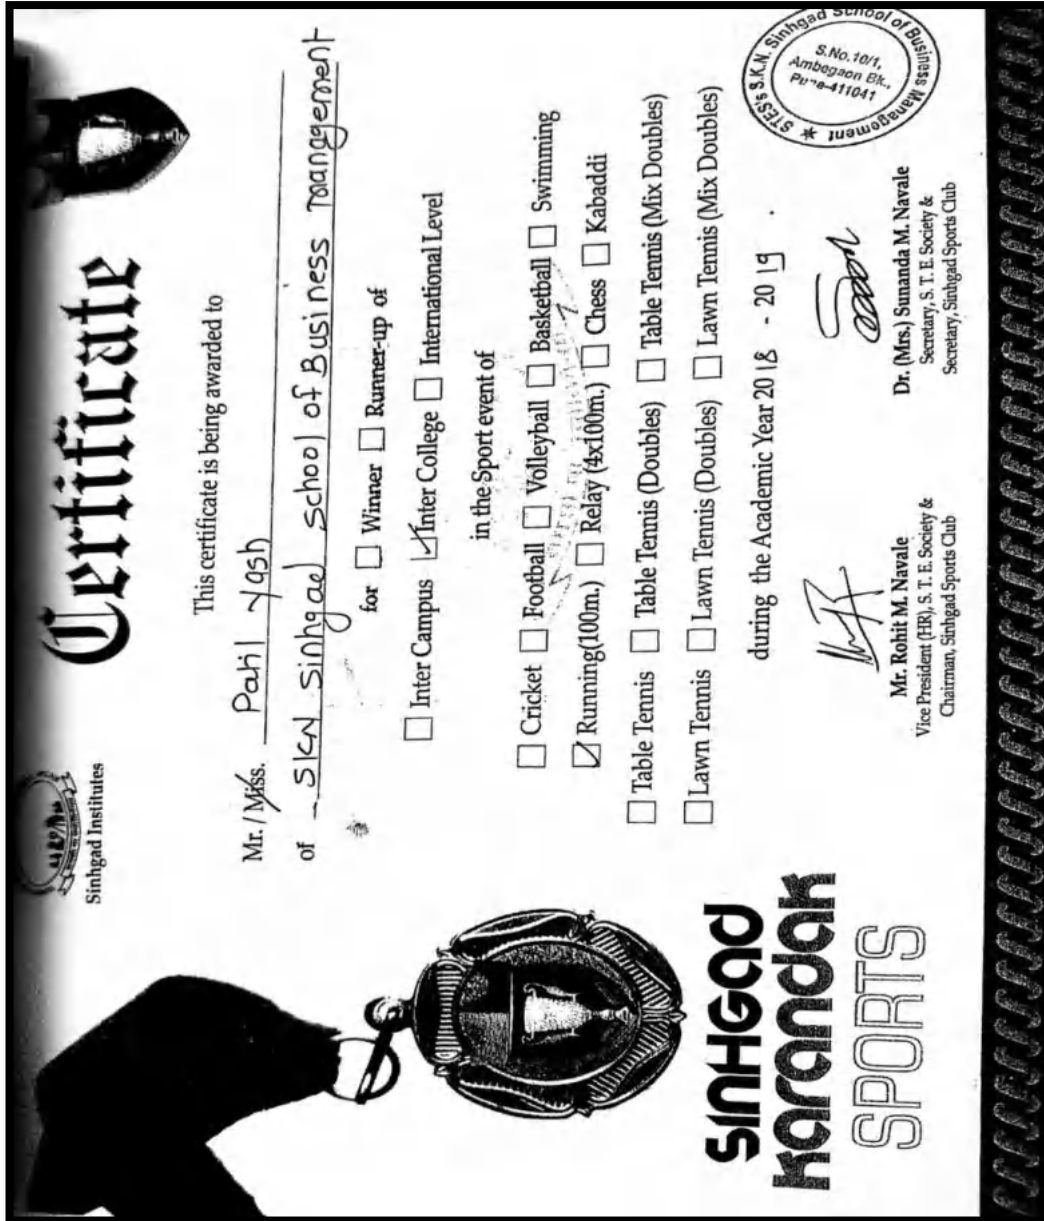 Sinhgad Institutes
Certificate
This certificate is being awarded to
Mr. / Miss. Patil Yash
of SKN Sinhgad School of Business management
for ☐ Winner ☐ Runner-up of
☐ Inter Campus ☑ Inter College ☐ International Level
in the Sport event of
☐ Cricket ☐ Football ☐ Volleyball ☐ Basketball ☐ Swimming
☑ Running(100m.) ☐ Relay (4x100m.) ☐ Chess ☐ Kabaddi
☐ Table Tennis ☐ Table Tennis (Doubles) ☐ Table Tennis (Mix Doubles)
☐ Lawn Tennis ☐ Lawn Tennis (Doubles) ☐ Lawn Tennis (Mix Doubles)
during the Academic Year 2018 - 2019.
SINHGAD
KARANDAK
SPORTS
Mr. Rohit M. Navale
Vice President (HR), S. T. E. Society &
Chairman, Sinhgad Sports Club
Dr. (Mrs.) Sunanda M. Navale
Secretary, S. T. E. Society &
Secretary, Sinhgad Sports Club
STES's S.K.N. Sinhgad School of Business Management
S.No.10/1,
Ambegaon Bk.,
Pune-411041